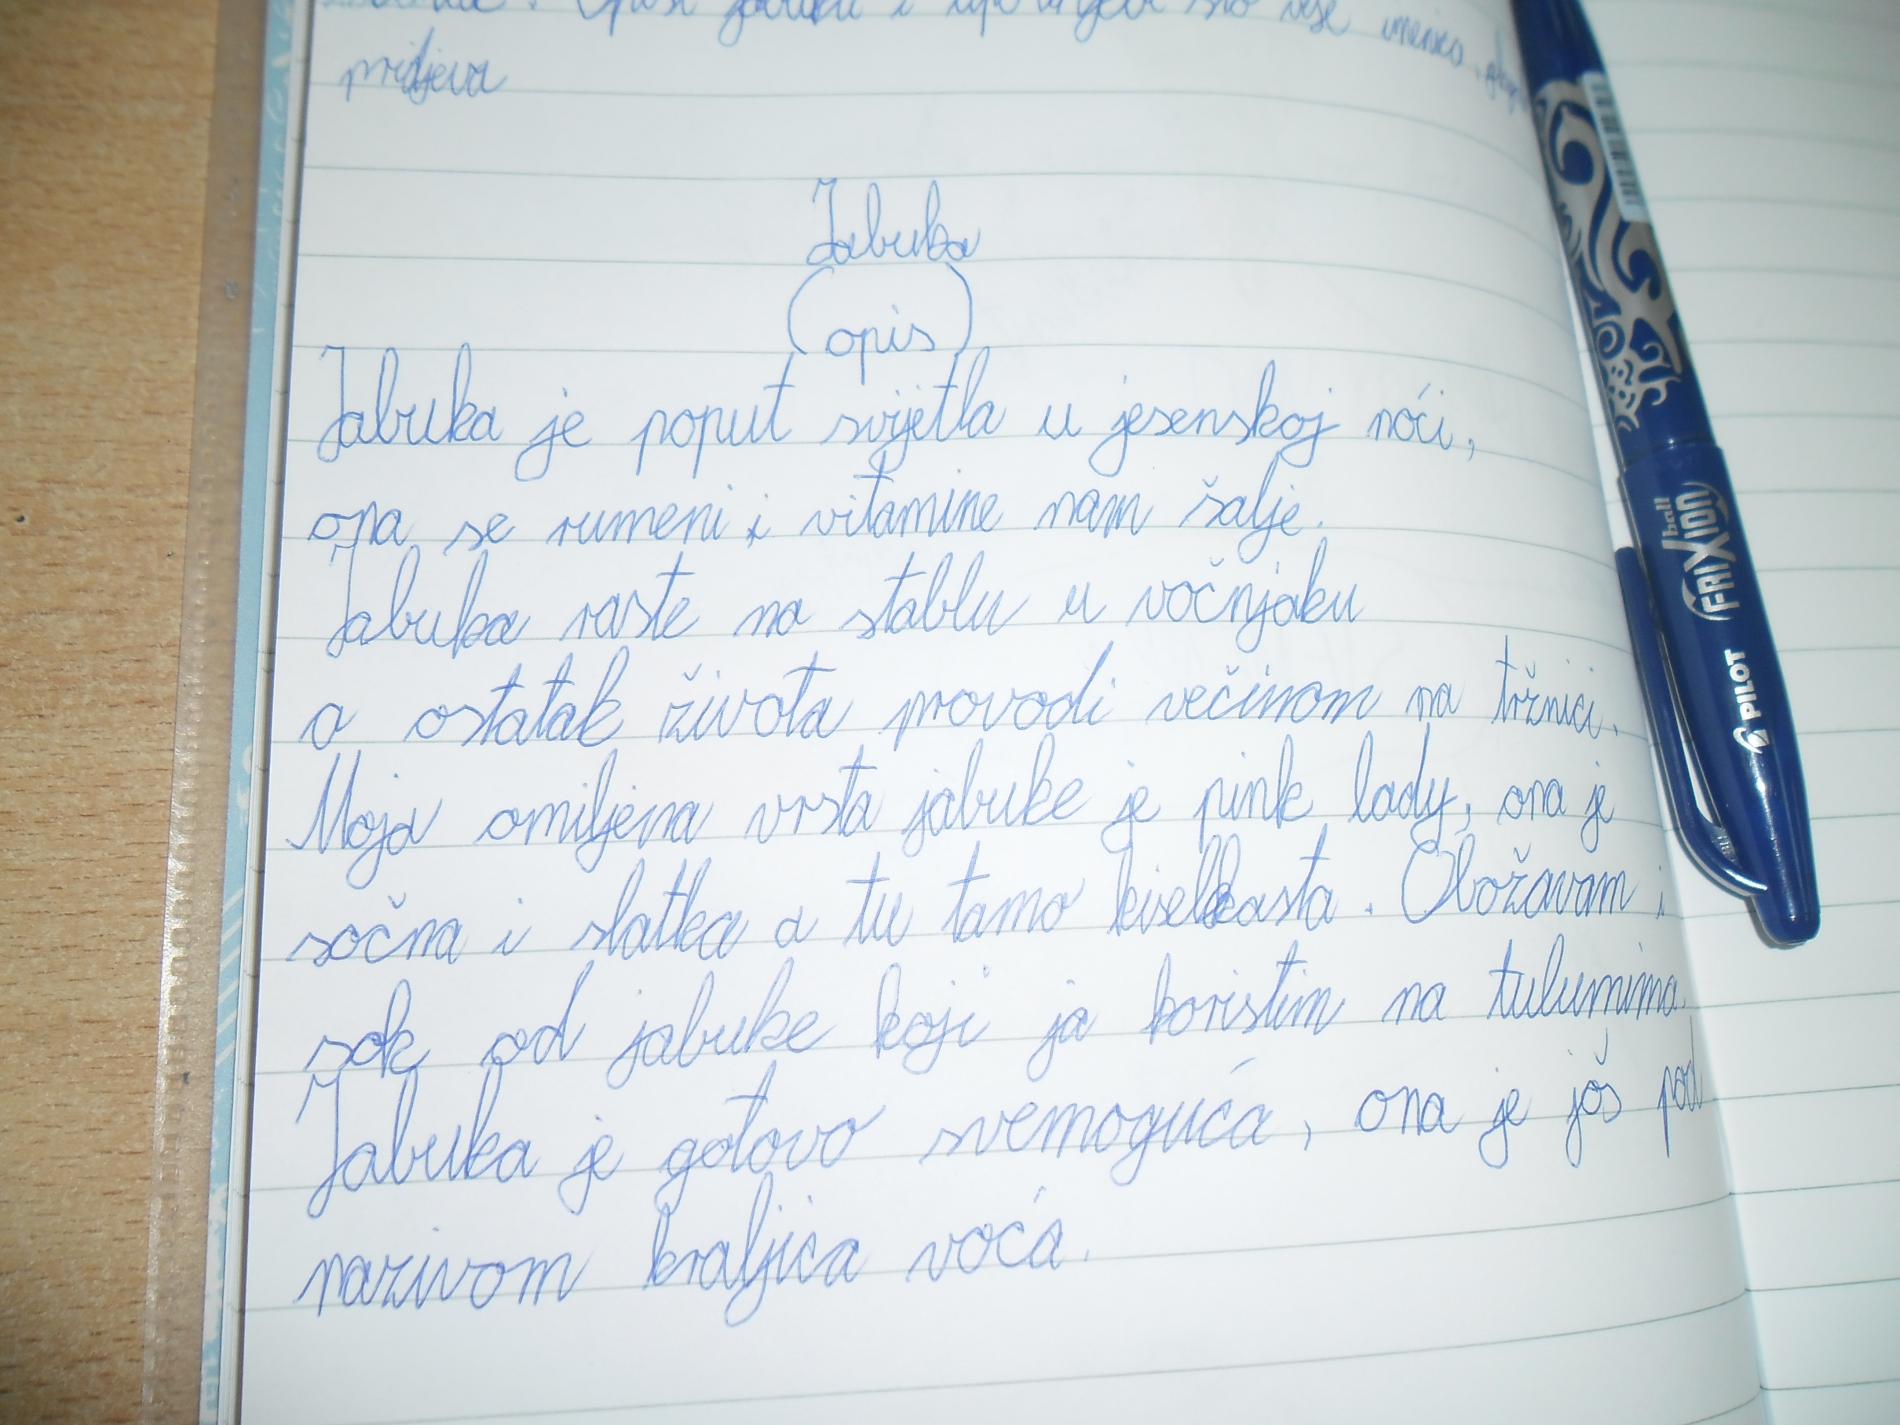 Opiši jabuku i upotrijebi što više imenica,
pridjeva
Jabuka
(opis)
Jabuka je poput svijetla u jesenskoj noći,
ona se rumeni i vitamine nam šalje.
Jabuka raste na stablu u voćnjaku
a ostatak života provodi većinom na tržnici.
Moja omiljena vrsta jabuke je pink lady, ona je
sočna i slatka a tu tamo kiselkasta. Obožavam i
sok od jabuke koji ja koristim na tulumima.
Jabuka je gotovo svemoguća, ona je još pod
nazivom kraljica voća.
ball
FRIXION
PILOT